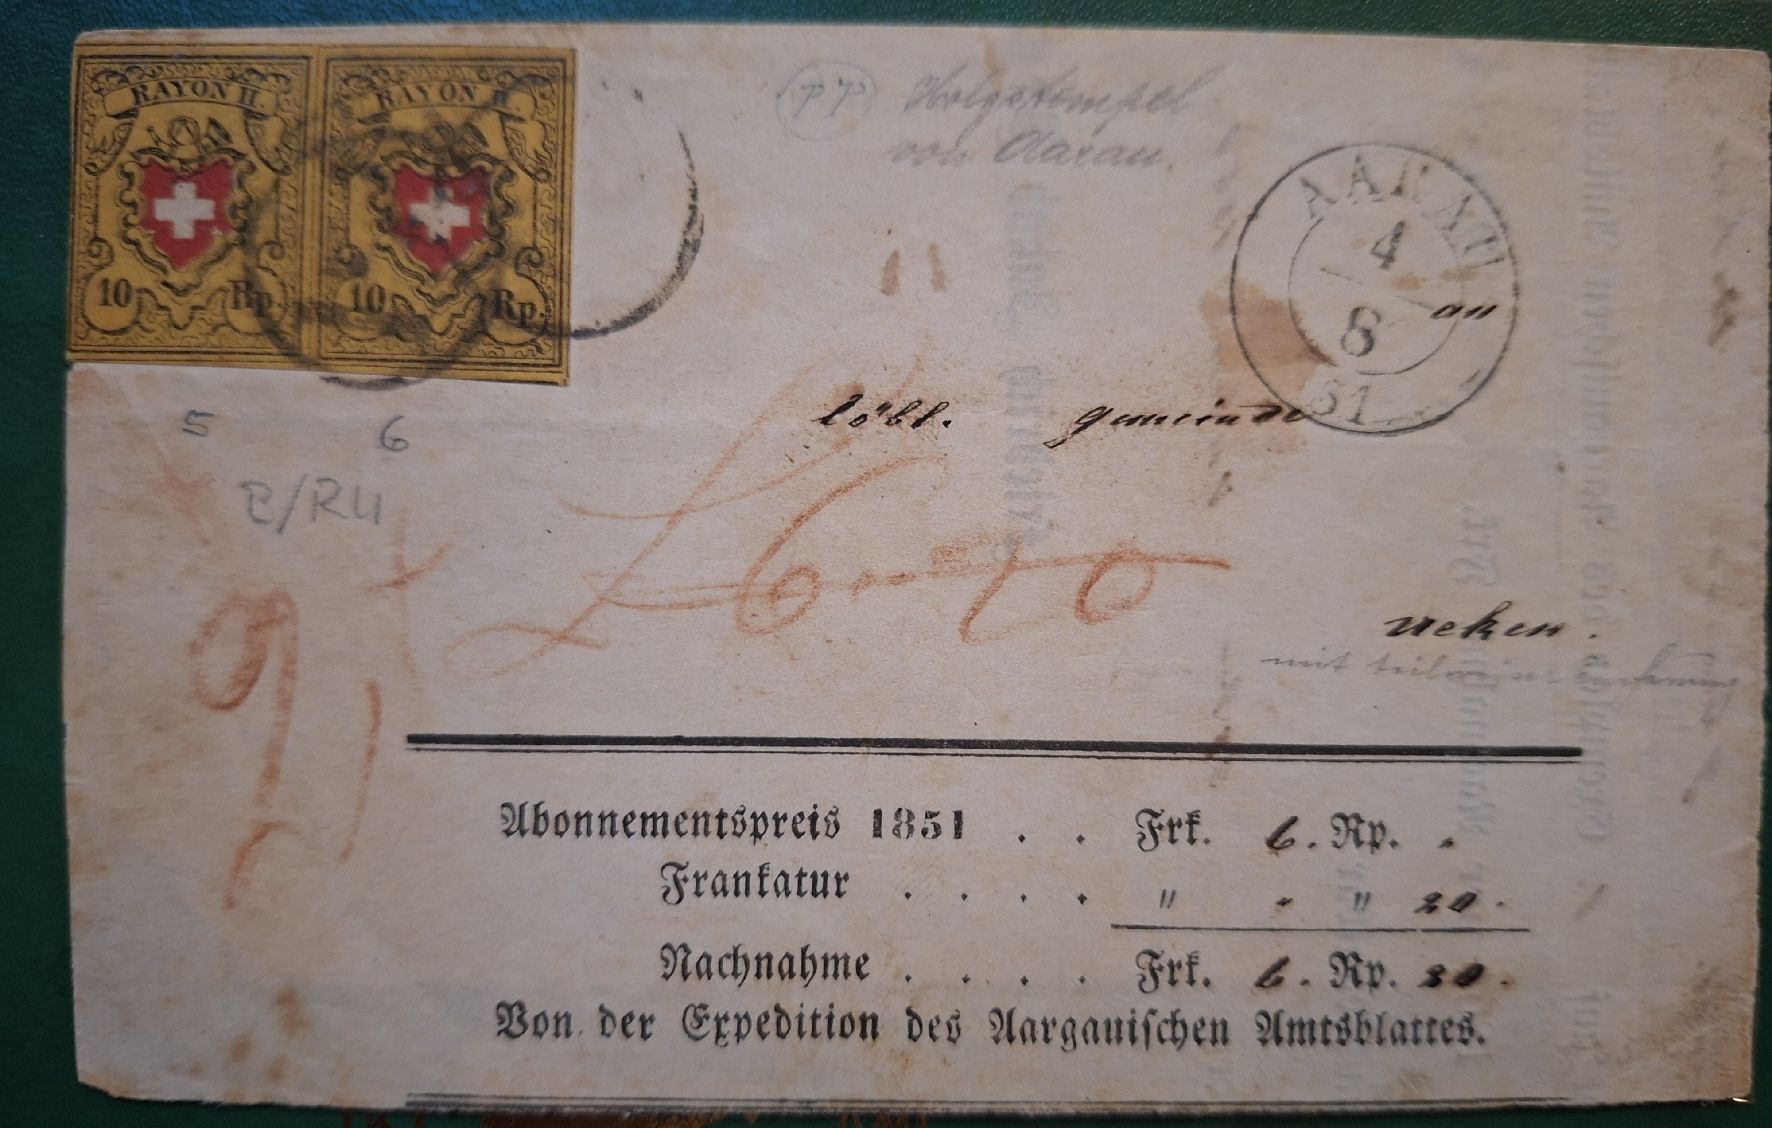 RAYON II. RAYON II
10 Rp. 10 Rp.
PP Holzstempel
von Aarau.
AARAU
4
8
51
an
löbl. Gemeinde
5 6
B/RU
6.20
Ueken.
mit teilweiser
Abonnementspreis 1851 . . Frk. 6. Rp. „
Frankatur . . . . " „ " 20.
Nachnahme . . . . Frk. 6. Rp. 20.
Von der Expedition des Aargauischen Amtsblattes.